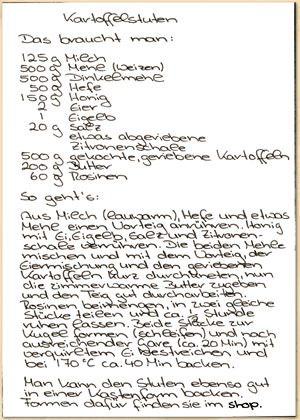 Kartoffelstuten
Das braucht man:
125 g Milch
500 g Mehl (Weizen)
500 g Dinkelmehl
50 g Hefe
150 g Honig
2 Eier
1 Eigelb
20 g Salz
etwas abgeriebene
Zitronenschale
500 g gekochte, geriebene Kartoffeln
200 g Butter
60 g Rosinen
So geht's:
Aus Milch (lauwarm), Hefe und etwas
Mehl einen Vorteig anrühren. Honig
mit Ei, Eigelb, Salz und Zitronen-
schale verrühren. Die beiden Mehle
mischen und mit dem Vorteig, der
Eiermischung und den geriebenen
Kartoffeln kurz durchkneten, nun
die zimmerwarme Butter zugeben
und den Teig gut durcharbeiten.
Rosinen beimengen, in zwei gleiche
Stücke teilen und ca. Stunde
ruhen lassen. Beide Stücke zur
Kugel formen (schleifen) und nach
ausreichender Gare (ca. 20 Min) mit
verquirltem Ei bestreichen und
bei 170°C ca. 40 Min backen.
Man kann den Stuten ebenso gut
in einer Kastenform backen.
Formen dafür finden sie im shop.